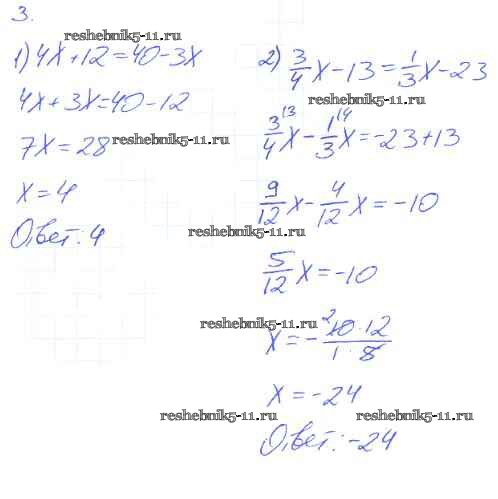 3.
reshebnik5-11.ru
1) 4x+12=40-3x
4x+3x=40-12
7x=28
reshebnik5-11.ru
x=4
Ответ: 4
2) 3/4 x-13=1/3 x-23
reshebnik5-11.ru
3/4 \3 x-1/3 \4 x=-23+13
9/12 x-4/12 x=-10
reshebnik5-11.ru
5/12 x=-10
reshebnik5-11.ru
x=- 2 10·12/1·5
x=-24
reshebnik5-11.ru
reshebnik5-11.ru
Ответ: -24